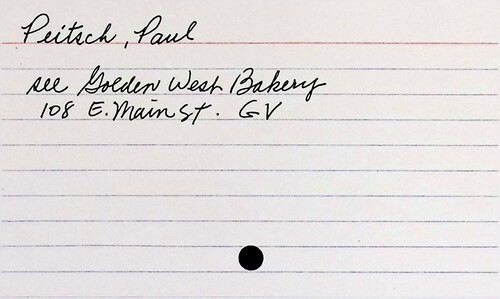 Peitsch, Paul
see Golden West Bakery
108 E. Main St. GV